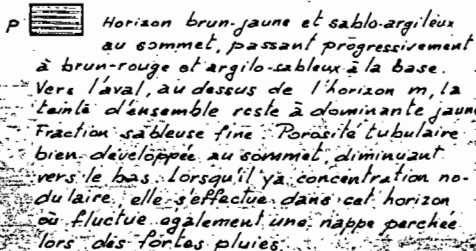 P Horizon brun-jaune et sablo-argileux
au sommet, passant progressivement
à brun-rouge et argilo-sableux à la base.
Vers l'aval, au dessus de l'horizon m, la
teinte d'ensemble reste à dominante jaune
Fraction sableuse fine. Porosité tubulaire
bien développée au sommet, diminuant
vers le bas. Lorsqu'il y a concentration no-
dulaire, elle s'effectue dans cet horizon
où fluctue également une nappe perchée
lors des fortes pluies.